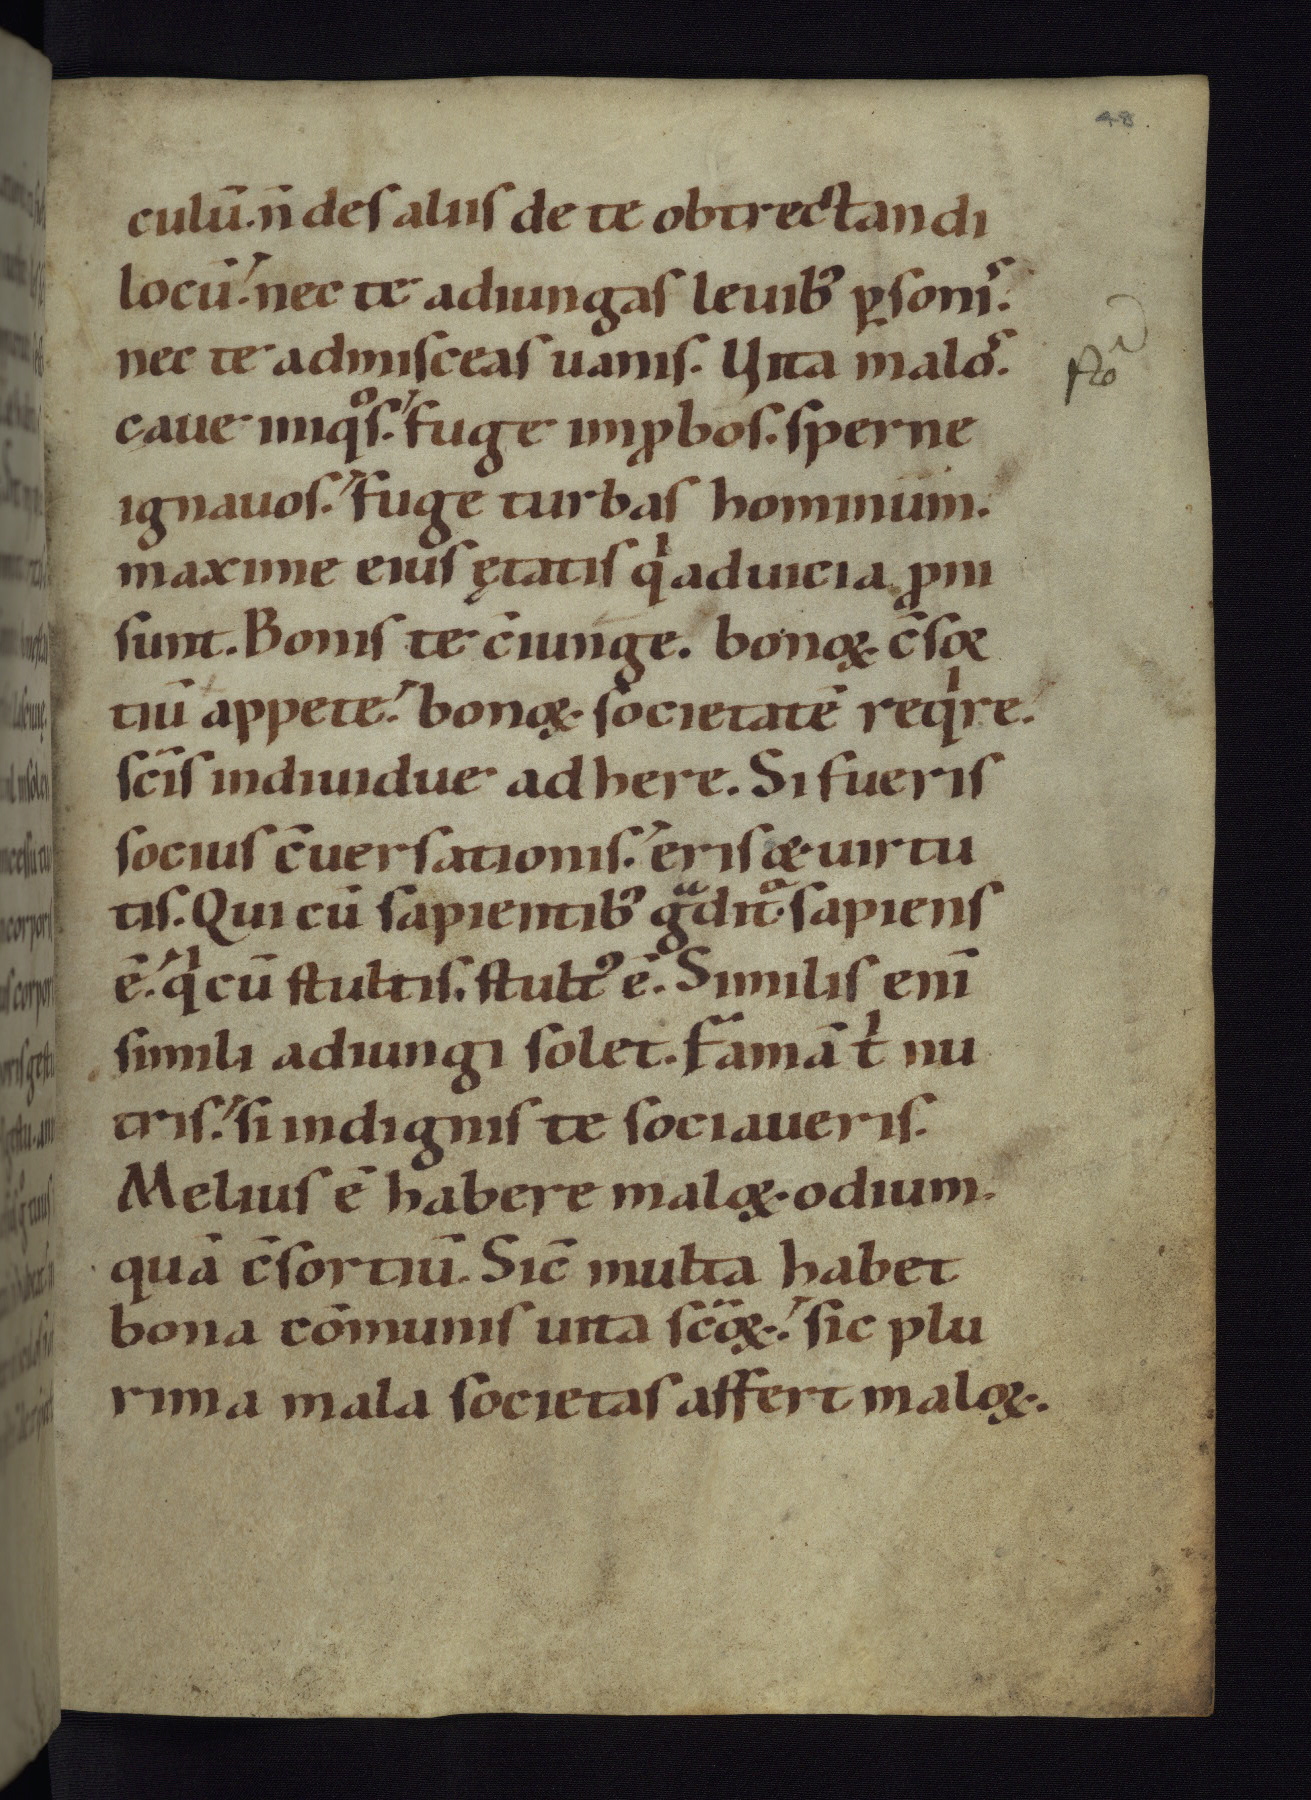 48
culū. n̄ des aliis de te obtrectandi
locū. nec te adiungas leuibꝰ ꝑsonis.
nec te admisceas uanis. Vita malos.
caue iniqᵒs. fuge inꝓbos. sperne
ignauos. fuge turbas hominum.
maxime eius ętatis qⁱ ad uicia ꝓni
sunt. Bonis te c̄iunge. bonoꝝ. c̄sor
tiū appete. bonoꝝ. societatē reqⁱre.
sc̄is indiuidue adhere. Si fueris
socius c̄uersationis. eris & uirtu
tis. Qui cū sapientibꝰ gᵃditᷣ. sapiens
ē. qⁱ cū stultis. stultꝰ ē. Similis enī
simili adiungi solet. Famā tⁱ nu
tris. si indignis te sociaueris.
Melius ē habere maloꝝ. odium.
quā c̄sortiū. Sic̄ multa habet
bona cōmunis uita sc̄oꝝ. sic plu
rima mala societas affert maloꝝ.